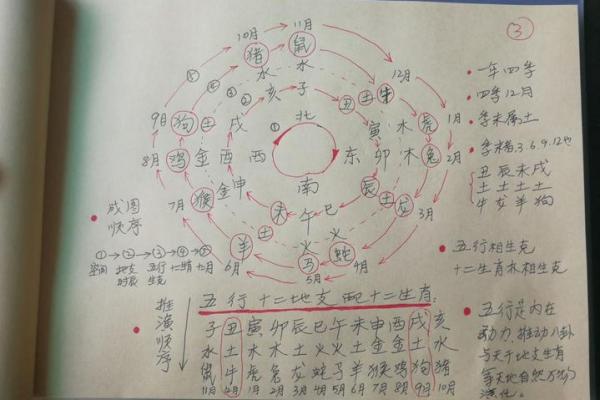 ③
10月 11月
猪 鼠
水 水
12月
亥 子
丑 土 牛
9日 狗 土 戌
北
寅 木 虎
1月
8月 鸡 金 酉 西
东 卯 木 兔 2月
南
7月 猴 金 申
未
午 巳
辰 土 龙
3月
土
羊
火 火
6月
马
蛇
5月
4月
① ② ③ ④ ⑤
一年四季
四季12月
季末属土
季末指3.6.9.12也
丑 辰 未 戌
土 土 土 土
牛 龙 羊 狗
成图
顺序
①→②→③→④→⑤
空间 地支 五行 十二
时辰 生
五行相生克
十二生肖亦相生克
推演顺序
五行十二地支配十二生肖:
子 丑 寅 卯 辰 巳 午 未 申 酉 戌 亥
水 土 木 木 土 火 火 土 金 金 土 水
鼠 牛 虎 兔 龙 蛇 马 羊 猴 鸡 狗 猪
11月 12月 1月 2月 3月 4月 5月 6月 7月 8月 9月 10月
五行是内在
动力,推动八卦
与天干地支生肖
等天地自然万物
演化。